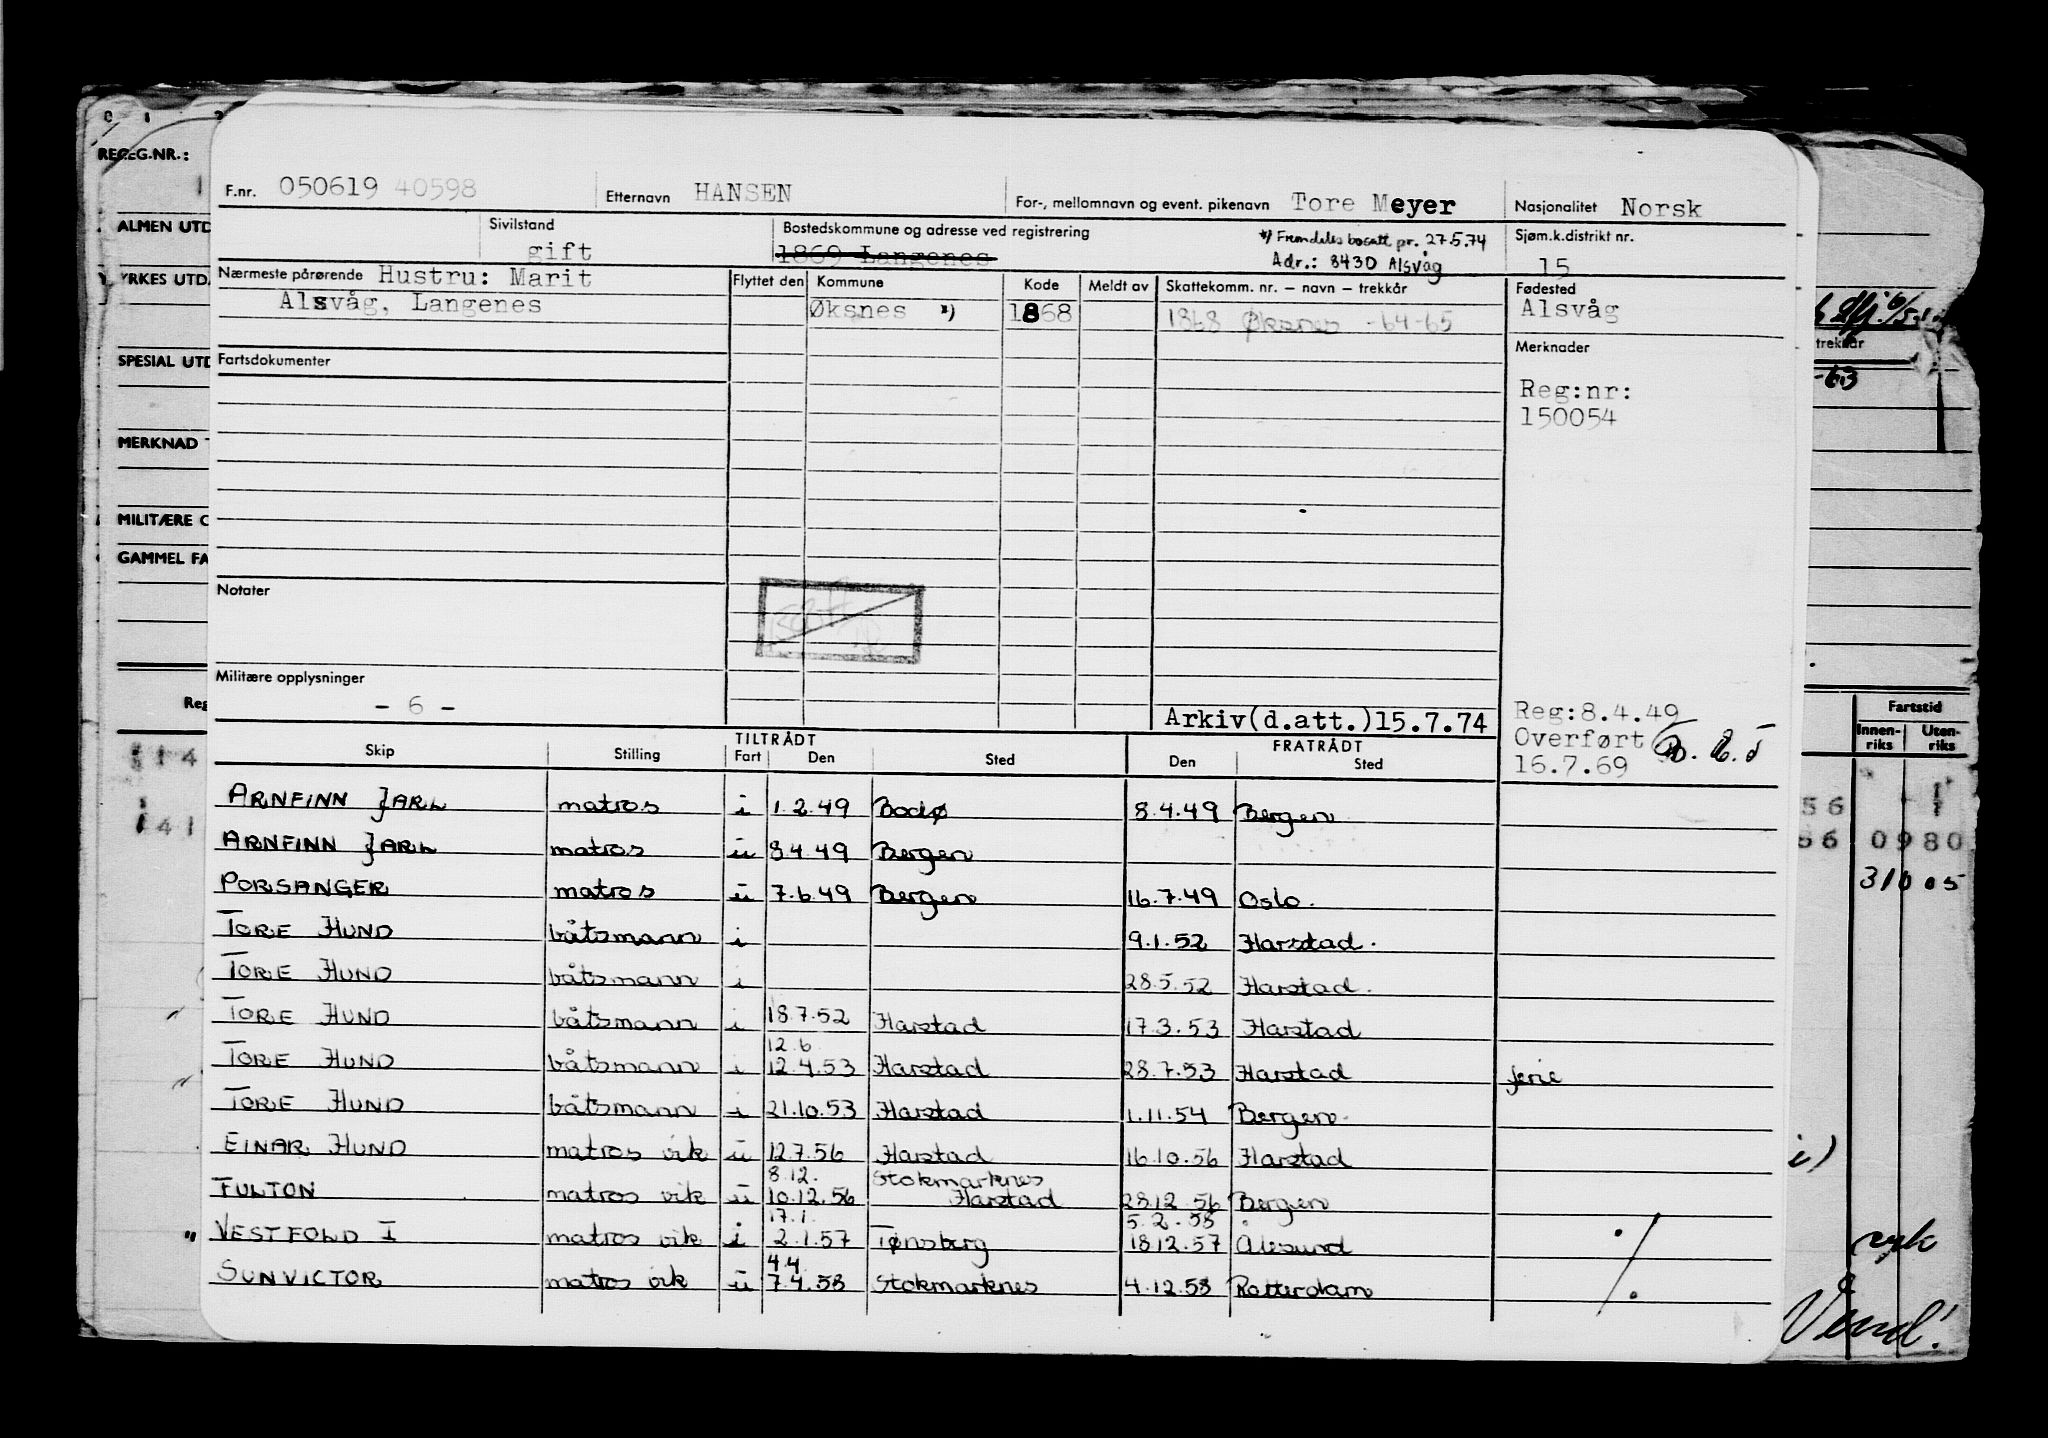 REG.NR.:
F.nr. 050619 40598 Etternavn HANSEN For-, mellomnavn og event. pikenavn Tore Meyer Nasjonalitet Norsk
ALMEN UTD
Sivilstand gift
Bostedskommune og adresse ved registrering
1869 Langenes
*) Fremdeles bosatt pr. 27.5.74
Adr.: 8430 Alsvåg
Sjøm.k.distrikt nr.
15
YRKES UTD.
Nærmeste pårørende Hustru: Marit
Alsvåg, Langenes
Flyttet den Kommune Kode Meldt av Skattekomm. nr. – navn – trekkår
Øksnes *) 1868 1868 Øksnes -64-65
Fødested
Alsvåg
trekkår
-63
SPESIAL UTD
Fartsdokumenter
Merknader
Reg:nr:
150054
MERKNAD
MILITÆRE
GAMMEL FA
Notater
Militære opplysninger
- 6 -
Arkiv(d.att.)15.7.74
Reg:8.4.49
Overført
16.7.69
Reg
Fartstid
Innen-riks Uten-riks
TILTRÅDT FRATRÅDT
Skip Stilling Fart Den Sted Den Sted
ARNFINN JARL matros i 1.2.49 Bodø 8.4.49 Bergen
ARNFINN JARL matros u 8.4.49 Bergen
PORSANGER matros u 7.6.49 Bergen 16.7.49 Oslo.
TORE HUND båtsmann i 9.1.52 Harstad.
TORE HUND båtsmann i 28.5.52 Harstad.
TORE HUND båtsmann i 18.7.52 Harstad 17.3.53 Harstad
12.6
TORE HUND båtsmann i 12.4.53 Harstad 28.7.53 Harstad ferie
TORE HUND båtsmann i 21.10.53 Harstad 1.11.54 Bergen.
EINAR HUND matros vik u 12.7.56 Harstad 16.10.56 Harstad
8.12. Stokmarknes
FULTON matros vik u 10.12.56 Harstad 28.12.56 Bergen
17.1. 5.2.58
" VESTFOLD I matros vik i 2.1.57 Tønsberg 18.12.57 Ålesund
4.4
SUNVICTOR matros vik u 7.4.58 Stokmarknes 4.12.58 Rotterdam
114
141
56
56 0980
31005
i)
Vend!